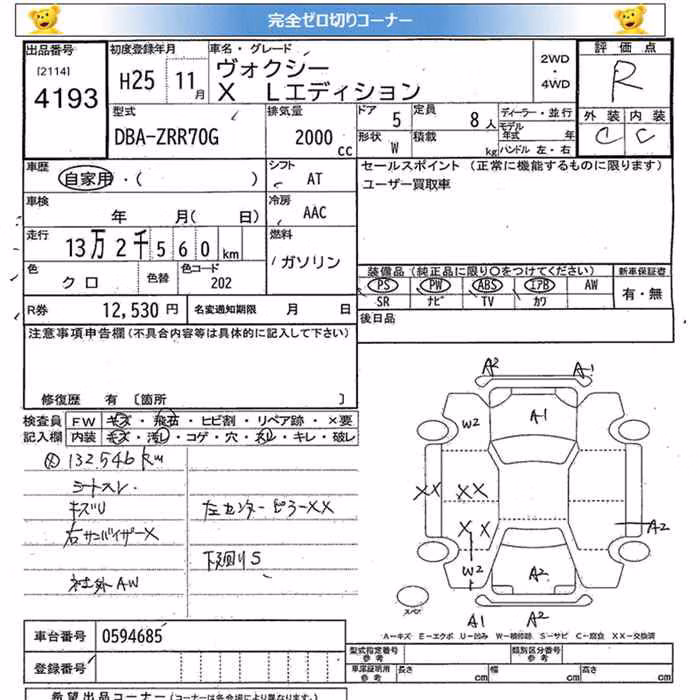 完全ゼロ切りコーナー
出品番号 初度登録年月 車名・グレード 2WD・4WD 評価点
(2114) 4193 H25 11月 ヴォクシー R
X Lエディション
型式 排気量 ドア 5 定員 8人 ディーラー・並行 外装 内装
DBA-ZRR70G 2000cc 形状 W 積載 kg モデル年式 年 C C
ハンドル 左・右
車歴 シフト セールスポイント (正常に機能するものに限ります)
自家用・( ) AT ユーザー買取車
車検 冷房
年 月(日) AAC
走行 燃料
13万2千560km ガソリン
色 色替 色コード 装備品(純正品に限り○をつけてください) 新車保証書
クロ 202 PS PW ABS エアB AW 有・無
SR ナビ TV カワ
R券 12,530円 名変通知期限 月 日 後日品
注意事項申告欄(不具合内容等は具体的に記入して下さい)
修復歴 有 〔箇所 〕
検査員 FW キズ・飛石・ヒビ割・リペア跡・×要
記入欄 内装 キズ・汚し・コゲ・穴・スレ・キレ・破レ
132.546Km
シートスレ.
キズU 左センターピラーXX
右サンバイザーX
下廻りS
社外AW
A2 A1
W2 A1
XX XX
XX A2
W2 A2
スペア
A1 A2
A−キズ E−エクボ U−凹み W−補修跡 S−サビ C−腐食 XX−交換済
車台番号 0594685
型式指定番号 参考 類別区分番号 参考
登録番号 車庫証明用 参考 長さ cm 幅 cm 高さ cm
希望出品コーナー(コーナーは各会場により異なります。)